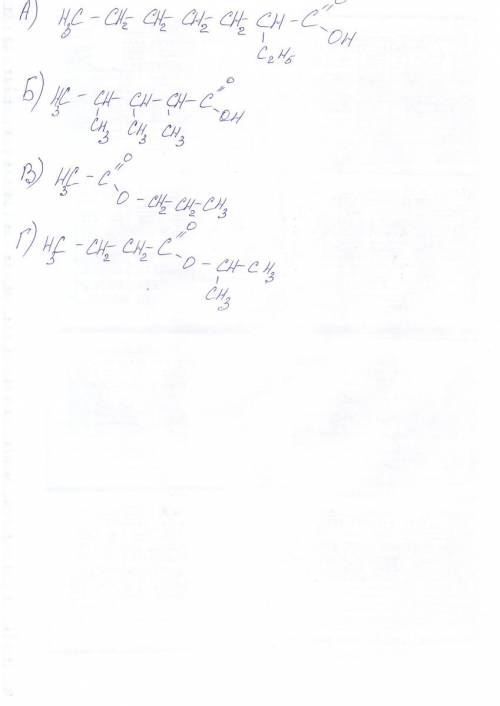 А) H₃C – CH₂ – CH₂ – CH₂ – CH₂ – CH – C
O
OH
C₂H₅
Б) H₃C – CH – CH – CH – C
O
OH
CH₃ CH₃ CH₃
В) H₃C – C
O
O – CH₂ – CH₂ – CH₃
Г) H₃C – CH₂ – CH₂ – C
O
O – CH – CH₃
CH₃